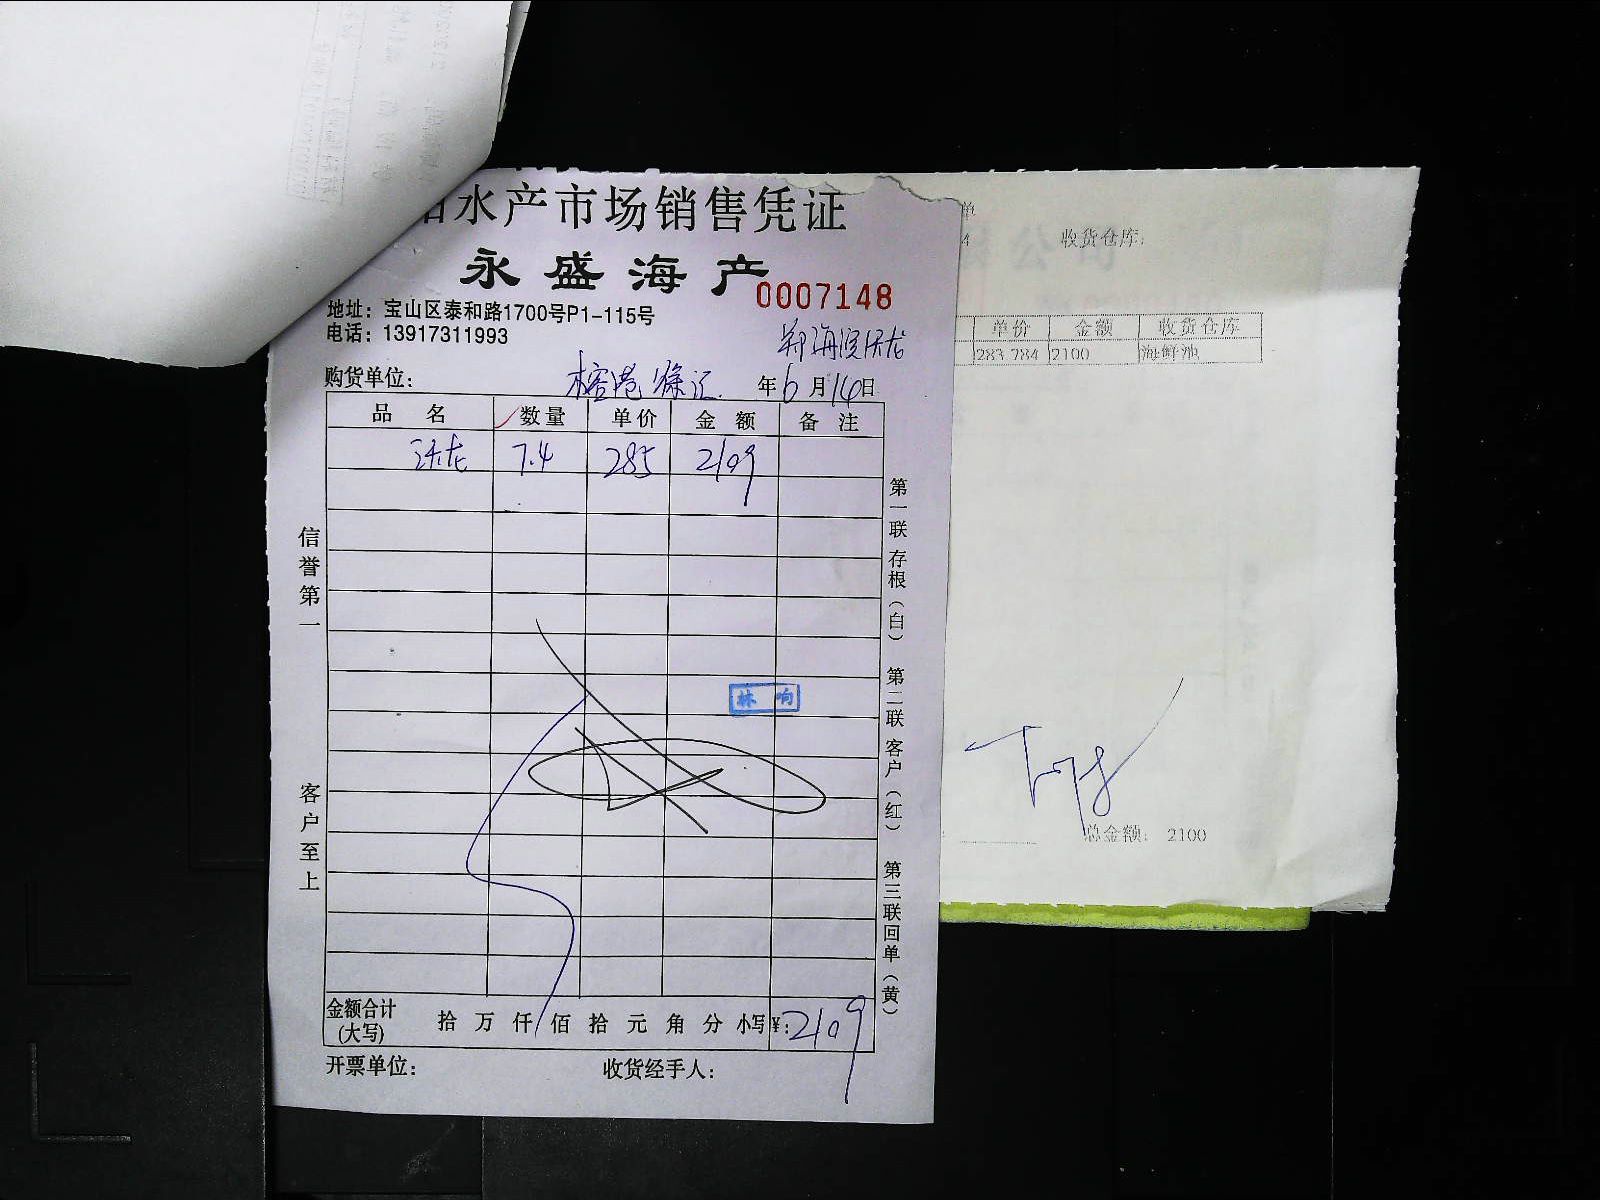 水产市场销售凭证
永盛海产
0007148
地址：宝山区泰和路1700号P1-115号
电话：13917311993
购货单位： 年6月14日
品名 数量 单价 金额 备注
沃龙 7.4 285 2109
信誉第一
客户至上
林响
第一联存根（白） 第二联客户（红） 第三联回单（黄）
金额合计(大写) 拾万仟佰拾元角分 小写¥：2109
开票单位： 收货经手人：
单
4 收货仓库：
单价 金额 收货仓库
283.784 2100 海鲜池
总金额： 2100